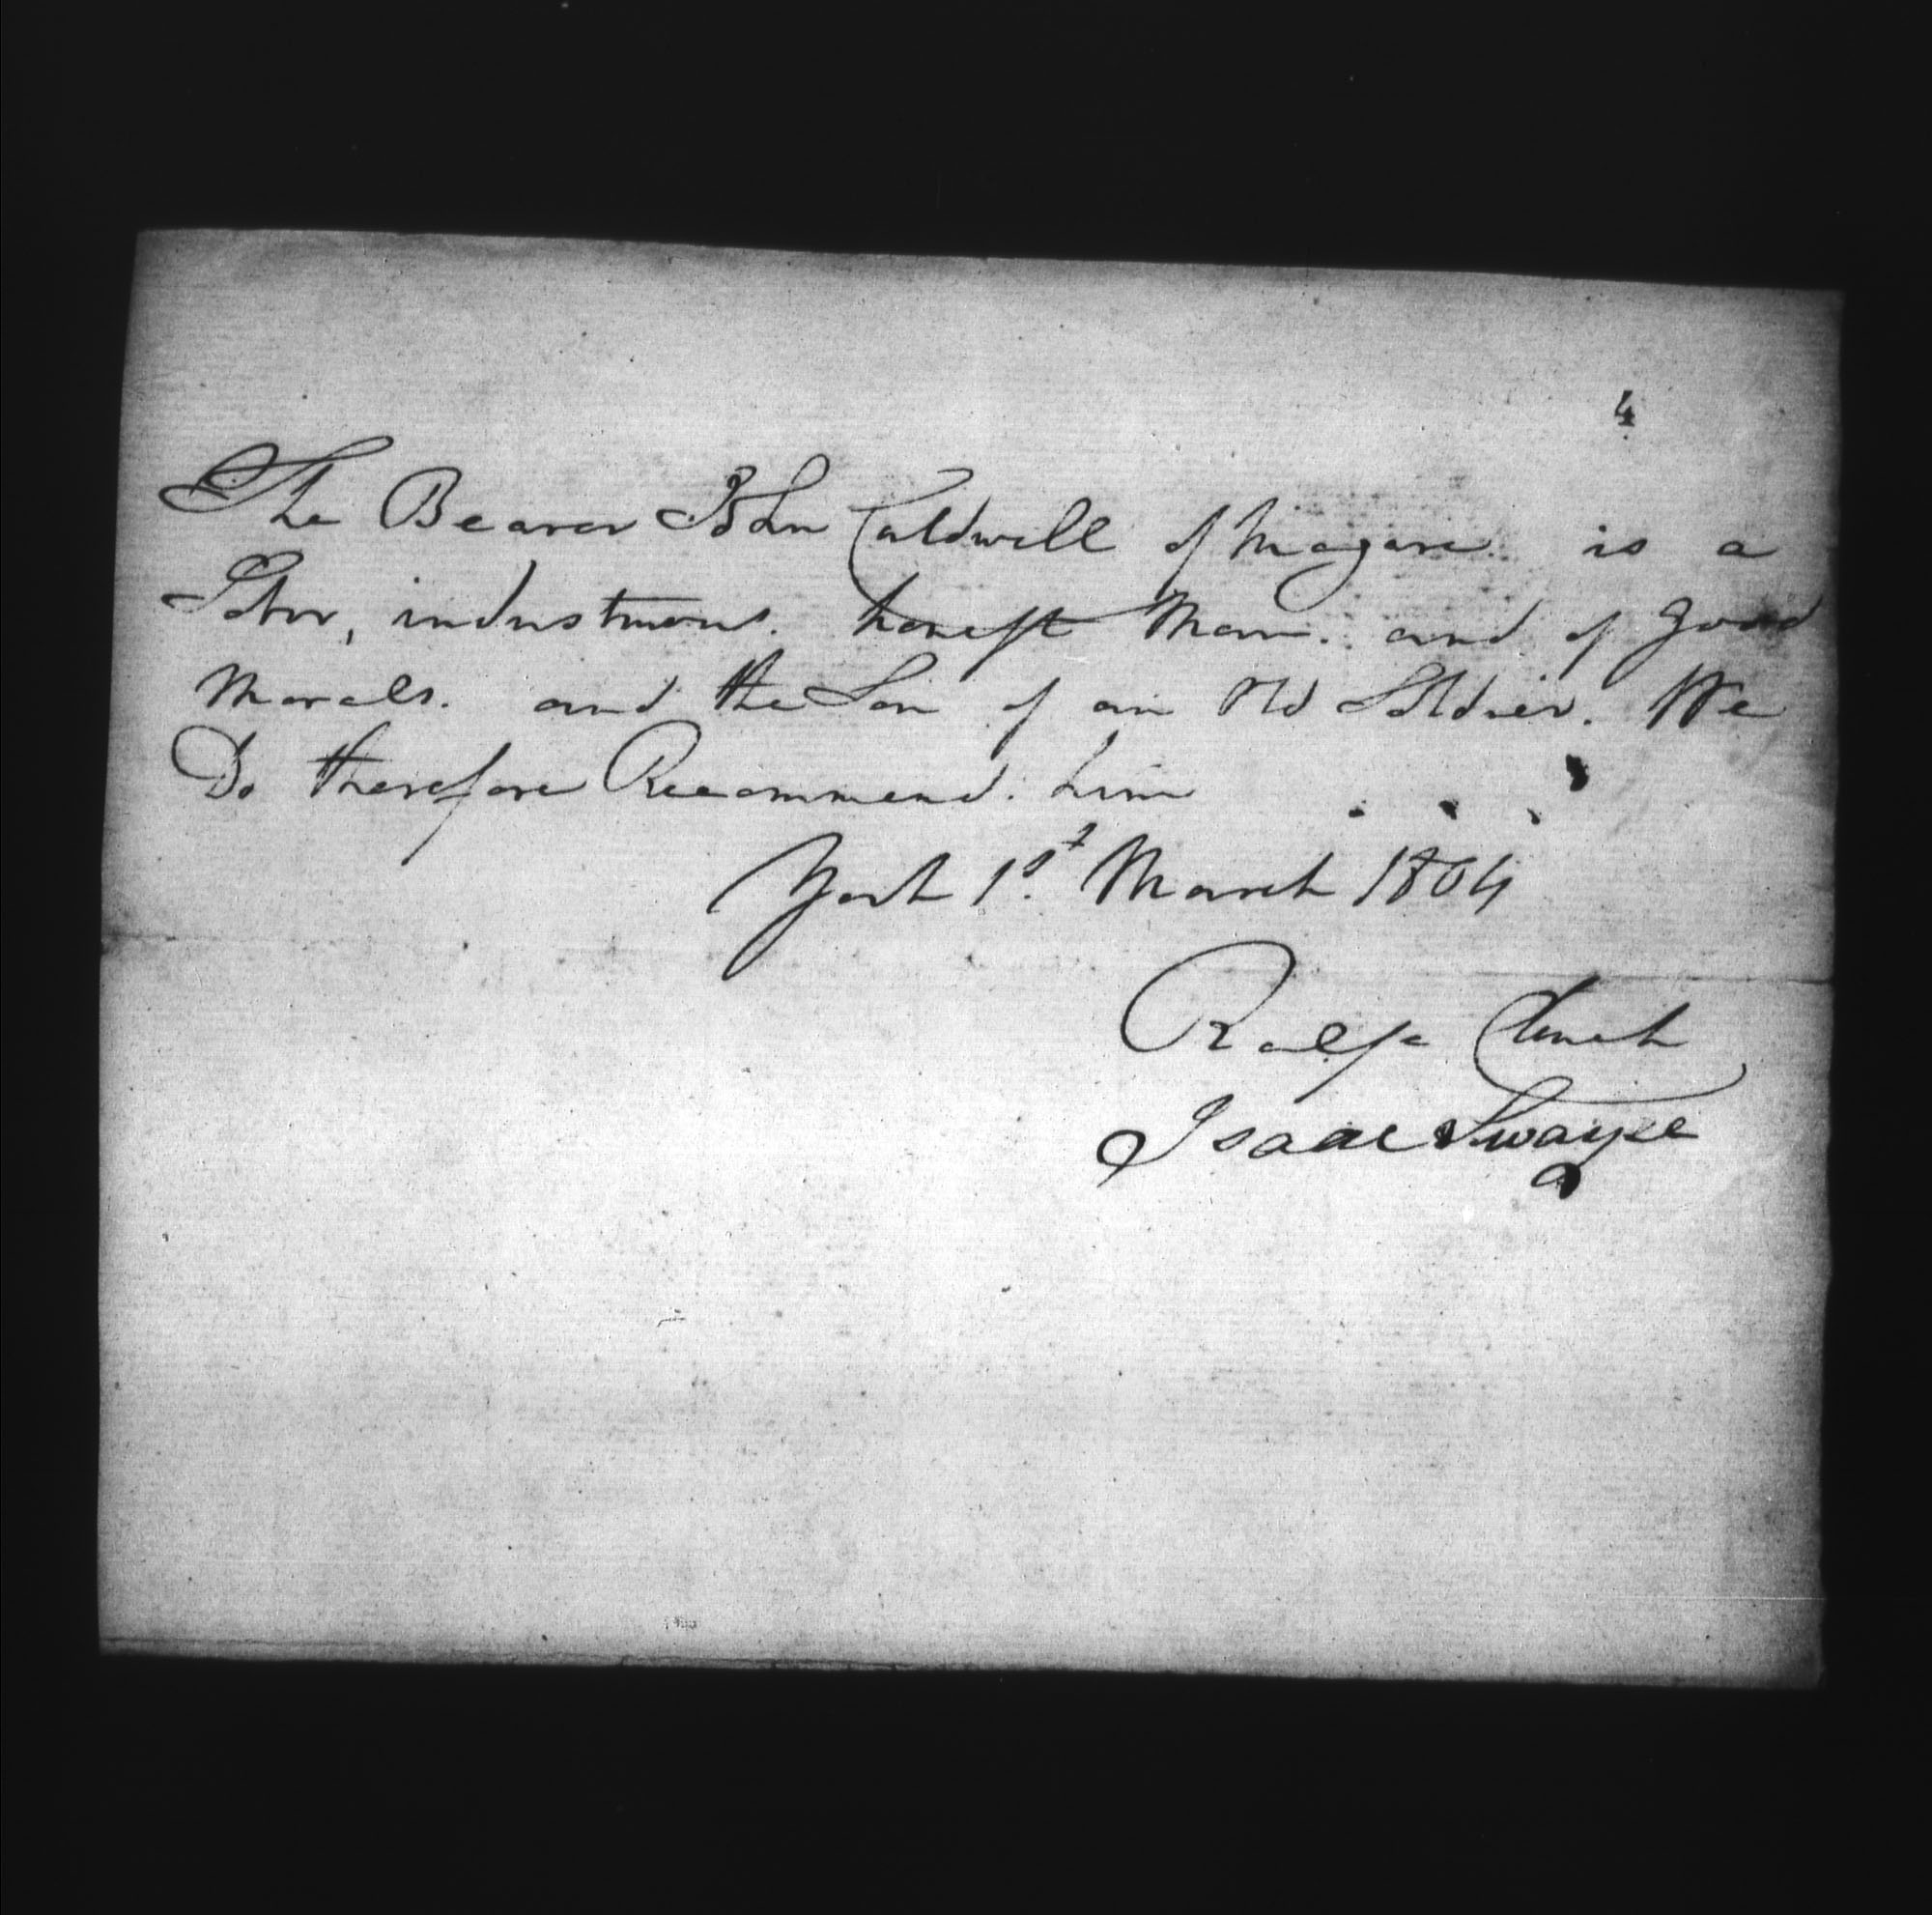 4
The Bearer John Caldwell of Niagara is a
Sober, industrious. honest Man. and of good
Morals. and the Son of an Old Soldier. We
Do therefore Recommend. him
York 1st. March 1804
Ralfe Clench
Isaac Swayze